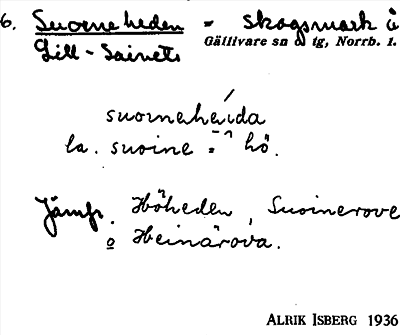 6. Suorneheden = skogsmark å
Lill-Saivets Gällivare sn o tg, Norrb. l.
suorneheida
la. suoine = hö.
Jämfr. Höheden, Suoinerove
o Heinärova.
ALRIK ISBERG 1936